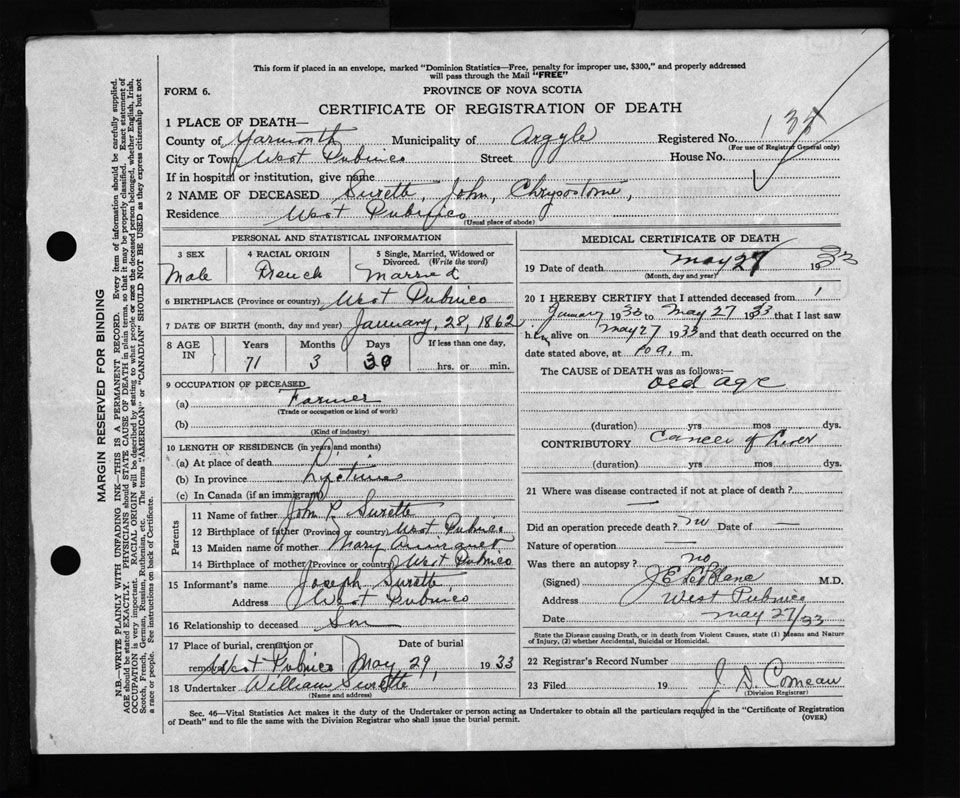 This form if placed in an envelope, marked "Dominion Statistics—Free, penalty for improper use, $300," and properly addressed
will pass through the Mail "FREE"
FORM 6.
PROVINCE OF NOVA SCOTIA
CERTIFICATE OF REGISTRATION OF DEATH
1 PLACE OF DEATH—
County of Yarmouth Municipality of Argyle Registered No.
(For use of Registrar General only)
City or Town West Pubnico Street House No.
If in hospital or institution, give name
2 NAME OF DECEASED Surette, John, Chrysostome,
Residence West Pubnico
(Usual place of abode)
PERSONAL AND STATISTICAL INFORMATION
3 SEX 4 RACIAL ORIGIN 5 Single, Married, Widowed or Divorced. (Write the word)
Male French Married
6 BIRTHPLACE (Province or country) West Pubnico
7 DATE OF BIRTH (month, day and year) January, 28, 1862
8 AGE IN Years Months Days If less than one day,
71 3 30 hrs. or min.
9 OCCUPATION OF DECEASED
(a) Farmer
(Trade or occupation or kind of work)
(b)
(Kind of industry)
10 LENGTH OF RESIDENCE (in years and months)
(a) At place of death
(b) In province Lifetime
(c) In Canada (if an immigrant)
Parents
11 Name of father John P. Surette
12 Birthplace of father (Province or country) West Pubnico
13 Maiden name of mother Mary
14 Birthplace of mother (Province or country) West Pubnico
15 Informant's name Joseph Surette
Address West Pubnico
16 Relationship to deceased Son
17 Place of burial, cremation or removal Date of burial
West Pubnico May, 29, 1933
18 Undertaker William Surette
(Name and address)
MEDICAL CERTIFICATE OF DEATH
19 Date of death May 27 1933
(Month, day and year)
20 I HEREBY CERTIFY that I attended deceased from
January 1933 to May 27 1933 that I last saw
him alive on May 27 1933 and that death occurred on
date stated above, at 10 a. m.
The CAUSE of DEATH was as follows:—
old age
(duration) yrs mos dys.
CONTRIBUTORY Cancer of liver
(duration) yrs mos dys.
21 Where was disease contracted if not at place of death?
—
Did an operation precede death? no Date of —
Nature of operation —
Was there an autopsy? no
(Signed) J E LeBlanc M.D.
Address West Pubnico
Date May 27/33
State the Disease causing Death, or in death from Violent Causes, state (1) Means and Nature
of Injury, (2) whether Accidental, Suicidal or Homicidal.
22 Registrar's Record Number
23 Filed 19 J. D. Comeau
(Division Registrar)
Sec. 46—Vital Statistics Act makes it the duty of the Undertaker or person acting as Undertaker to obtain all the particulars required in the "Certificate of Registration
of Death" and to file the same with the Division Registrar who shall issue the burial permit.
(OVER)
MARGIN RESERVED FOR BINDING
N.B.—WRITE PLAINLY WITH UNFADING INK—THIS IS A PERMANENT RECORD. Every item of information should be carefully supplied.
AGE should be stated EXACTLY. PHYSICIANS should STATE CAUSE OF DEATH in plain terms, so that it may be properly classified. Exact statement of
OCCUPATION is very important. RACIAL ORIGIN will be described by stating to what people or race the deceased person belonged, whether English, Irish,
Scotch, French, German, Russian, Ruthenian, etc. The terms "AMERICAN" or "CANADIAN" SHOULD NOT BE USED as they express citizenship but not
a race or people. See instructions on back of Certificate.